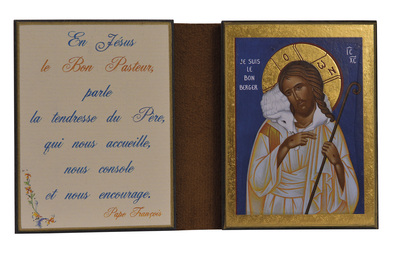 En Jésus
le Bon Pasteur,
parle
la tendresse du Père,
qui nous accueille,
nous console
et nous encourage.
Pape François
JE SUIS
LE
BON
BERGER
Ο Ω Ν
IC
XC